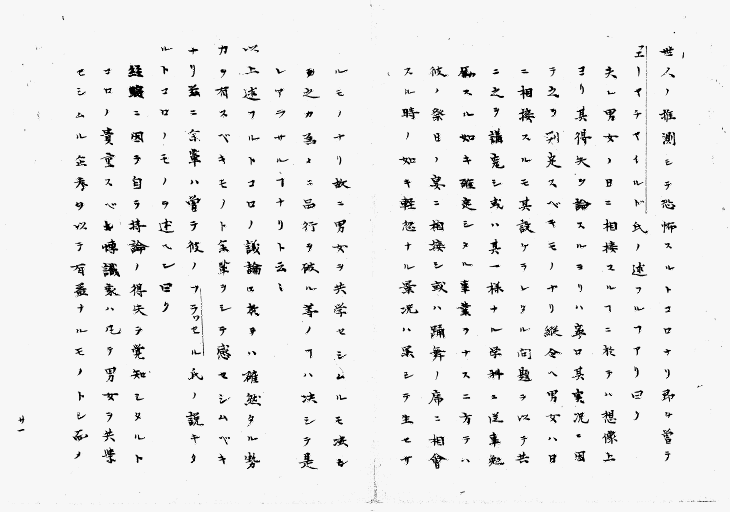 世人ノ推測シテ恐怖スルトコロナリ即チ曽テ
エーヤデマイルド氏ノ述フルアリ曰ク
夫レ男女ノ日ニ相接スルヿニ於テハ想像上
ヨリ其得失ヲ論スルヨリハ寧ロ其実況ニ因
テ之ヲ判定スベキモノナリ縦令ヘ男女ハ日
ニ相接スルモ其設ケラレタル問題ヲ以テ共
ニ之ヲ講究シ或ハ其一様ナル学科ニ従事勉
励スル如キ確定シタル事業ヲナスニ方テハ
彼ノ祭日ノ宴ニ相接シ或ハ踊舞ノ席ニ相會
スル時ノ如キ軽忽ナル景況ハ果シテ生セサ
ルモノナリ故ニ男女ヲ共学セシムルモ決シ
テ之カ為メニ品行ヲ破ル等ノヿハ決シテ是
レアラサルヿナリト云々
以上述フルトコロノ議論ニ於テハ確然タル勢
力ヲ有スベキモノト余輩ヲシテ感セシムベキ
ナリ茲ニ余輩ハ曽テ彼ノフラッセル氏ノ説キタ
ルトコロノモノヲ述ヘン曰ク
経験ニ因テ自ラ持論ノ得失ヲ覚知シタルト
コロノ貴重スベキ博識家ハ凡テ男女ヲ共学
セシムル企考ヲ以テ有益ナルモノトシ而ノ
廿一